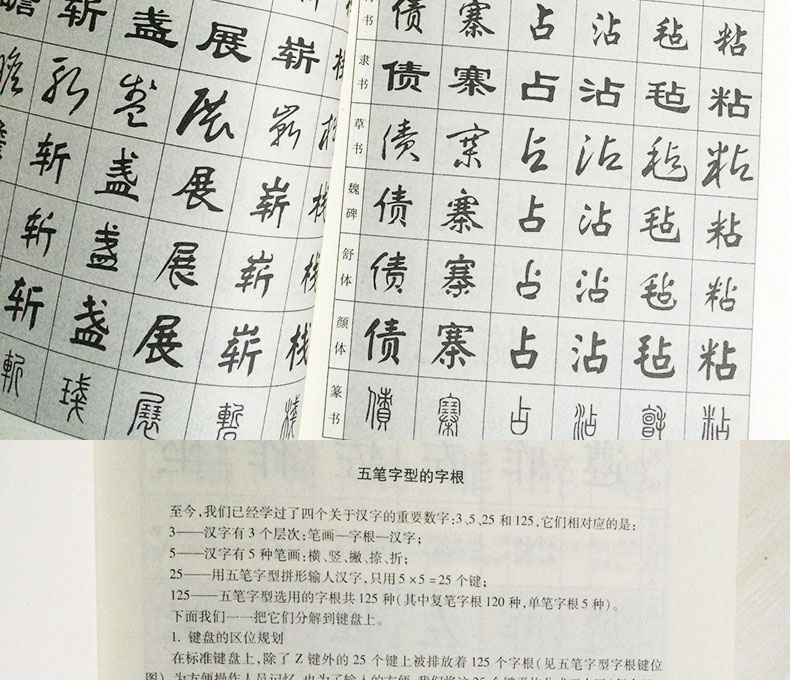 斩 盏 展 崭 栈
斩 盏 展 崭 栈
斩 盏 展 崭 栈
斩 盏 展 崭 栈
斩 盏 展 崭 栈
书 债 寨 占 沾 毡 粘
隶书 债 寨 占 沾 毡 粘
草书 债 寨 占 沾 毡 粘
魏碑 债 寨 占 沾 毡 粘
舒体 债 寨 占 沾 毡 粘
颜体 债 寨 占 沾 毡 粘
篆书 債 寨 占 沾 氈 粘
五笔字型的字根
至今,我们已经学过了四个关于汉字的重要数字:3、5、25 和 125,它们相对应的是:
3——汉字有 3 个层次:笔画—字根—汉字;
5——汉字有 5 种笔画:横、竖、撇、捺、折;
25——用五笔字型拼形输入汉字,只用 5×5=25 个键;
125——五笔字型选用的字根共 125 种(其中复笔字根 120 种,单笔字根 5 种)。
下面我们一一把它们分解到键盘上。
1. 键盘的区位规划
在标准键盘上,除了 Z 键外的 25 个键上被排放着 125 个字根(见五笔字型字根键位
图)。为方便操作人员记忆,也为了输入的方便,我们将这 25 个键